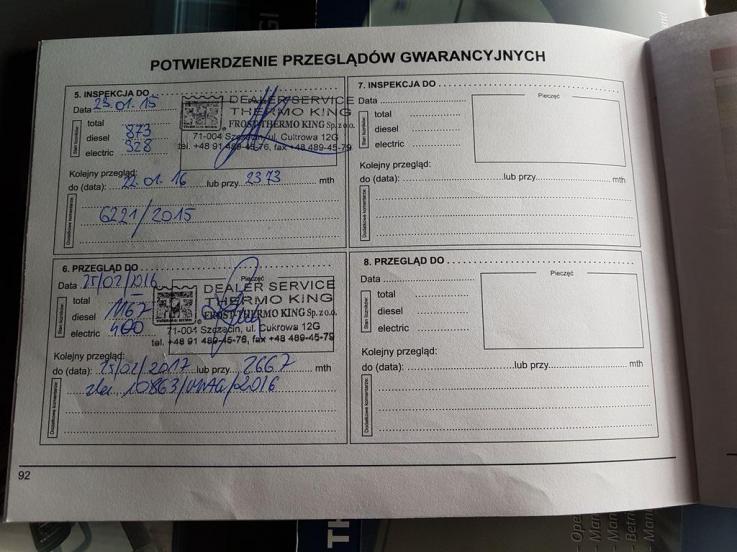 POTWIERDZENIE PRZEGLĄDÓW GWARANCYJNYCH
5. INSPEKCJA DO
Data 23.01.15
total
diesel 873
electric 328
Stan liczników:
DEALER SERVICE
THERMO KING
FROST-THERMO KING Sp. z o.o.
71-004 Szczecin, ul. Cukrowa 12G
tel. +48 91 489-45-76, fax +48 489-45-79
Kolejny przegląd:
do (data): 22.01.16 lub przy 2373 mth
Dodatkowe komentarze:
6221/2015
6. PRZEGLĄD DO
Pieczęć
Data 25/02/2016
total
diesel 1167
electric 400
Stan liczników:
DEALER SERVICE
THERMO KING
FROST-THERMO KING Sp. z o.o.
71-004 Szczecin, ul. Cukrowa 12G
tel. +48 91 489-45-76, fax +48 489-45-79
Kolejny przegląd:
do (data): 25/02/2017 lub przy 2667 mth
Dodatkowe komentarze:
/2016
7. INSPEKCJA DO
Data
Pieczęć
total
diesel
electric
Stan liczników:
Kolejny przegląd:
do (data): lub przy mth
Dodatkowe komentarze:
8. PRZEGLĄD DO
Data
Pieczęć
total
diesel
electric
Stan liczników:
Kolejny przegląd:
do (data): lub przy mth
Dodatkowe komentarze:
92
TH